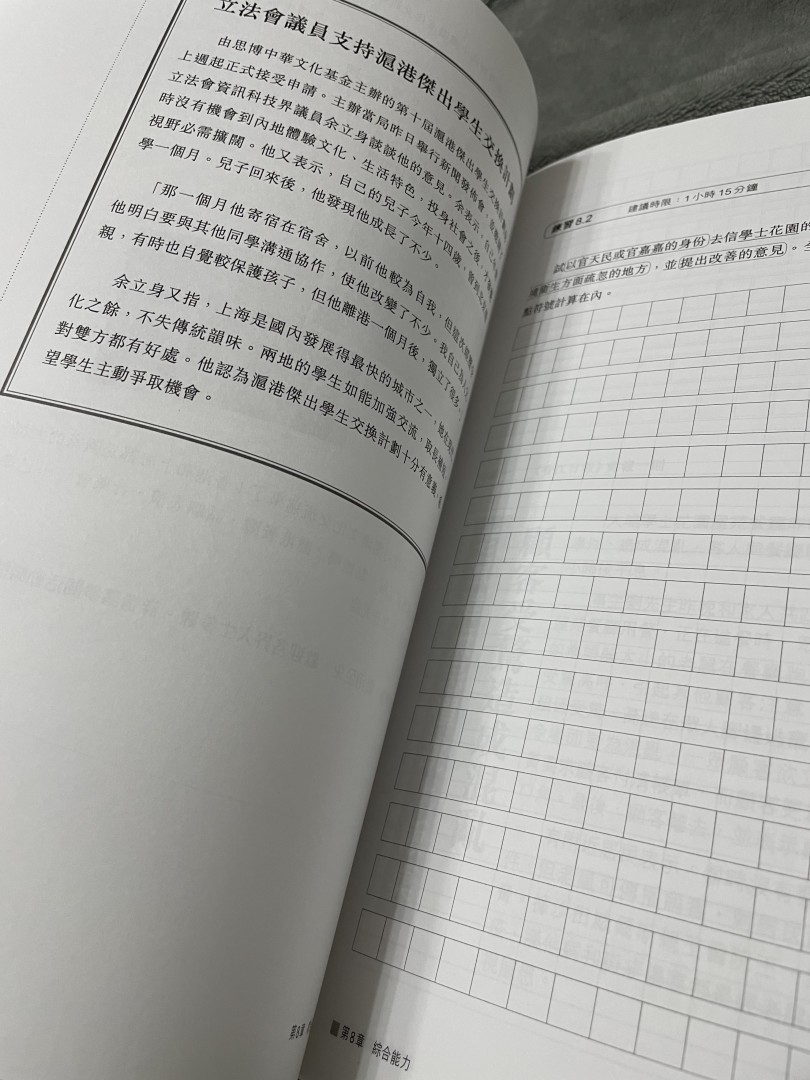 立法會議員支持滬港傑出學生交換計劃
由思博中華文化基金主辦的第十屆滬港傑出學生交換
上週起正式接受申請。主辦當局昨日舉行新聞發佈會，
立法會資訊科技界議員余立身談談他的意見。余表示，自己
時沒有機會到內地體驗文化、生活特色，投身社會之後，
視野必需擴闊。他又表示，自己的兒子今年十四歲，
學一個月。兒子回來後，他發現他成長了不少。
「那一個月他寄宿在宿舍，以前他較為自我，但
他明白要與其他同學溝通協作，使他改變了不少。我自己
親，有時也自覺較保護孩子，但他離港一個月後，獨立了很多。
余立身又指，上海是國內發展得最快的城市之一，
化之餘，不失傳統韻味。兩地的學生如能加強交流，取長補短，
對雙方都有好處。他認為滬港傑出學生交換計劃十分有意義，
望學生主動爭取機會。
練習8.2
建議時限：1小時15分鐘
試以官天民或官嘉嘉的身份去信學士花園的
衞生方面疏忽的地方，並提出改善的意見。
點符號計算在內。
第8章 綜合能力